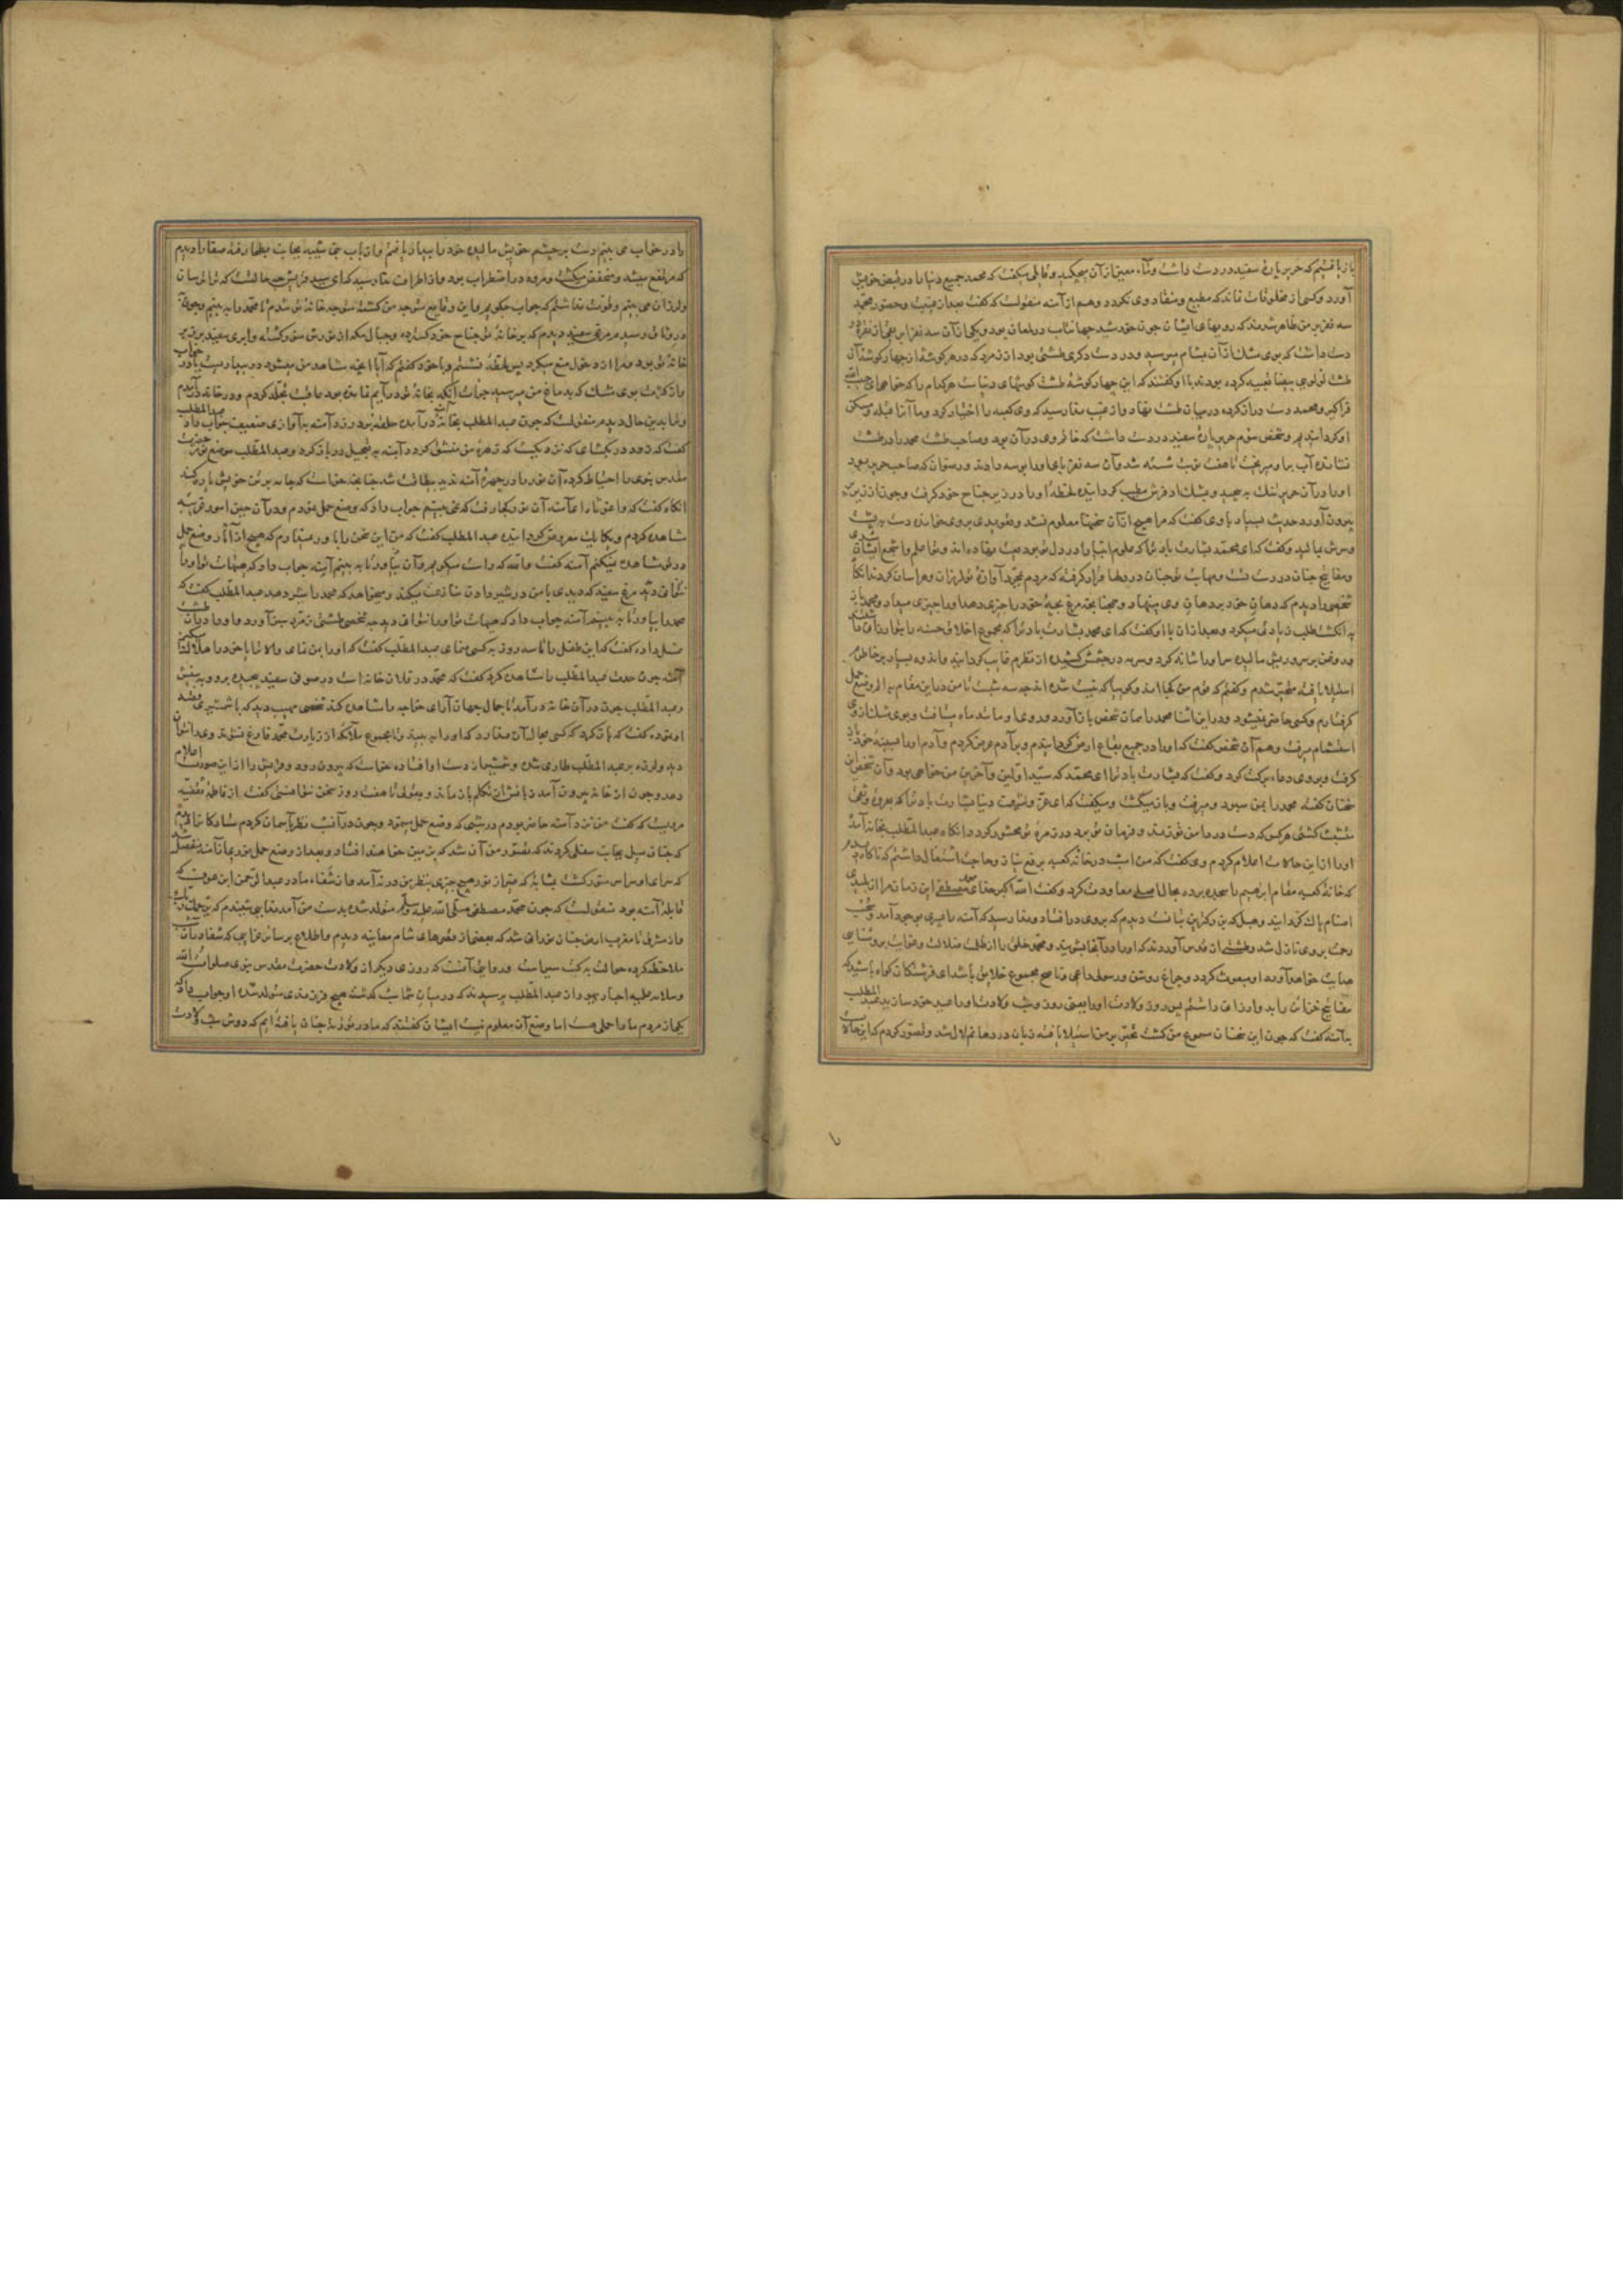 باز یافتم که حریر پارهٔ سفید در دست داشت و ماء معین از آن میچکید و قایلی میکفت که محمد جمیع دنیا را در قبض خویش
آورد و کسی از مخلوقات نماند که مطیع و منقاد وی نکردد و هم از آمنه منقولست که کفت بعد از غیبت و حضور محمد
سه نفر بر من ظاهر شدند که رویهای ایشان چون خورشید جهانتاب در لمعان بود و یکی از آن سه نفر ابریقی از نقره در
دست داشت که بوی مشک از آن بمشام میرسید و در دست دکری طشتی بود از زمرد که در هر کوشه از چهار کوشهٔ آن
طشت لولوی بیضا تعبیه کرده بودند با او کفتند که این چهار کوشهٔ طشت کوشهای دنیاست هر کدام را که خواهی ای حبیب الله
فراکیر و محمد دست دراز کرده در میان طشت نهاد و از غیب ندا رسید که وی کعبه را اختیار کرد و ما آنرا قبله و مسکن
او کردانیدیم و شخص سوم حریر پارهٔ سفید در دست داشت که خاتمی در آن بود و صاحب طشت محمد را در طشت
نشانده آب بر او میریخت تا هفت نوبت شسته شد و آن سه نفر پای او را بوسه دادند و رضوان که صاحب حریر بود
او را در آن حریر تنک به پیچید و بمشک اذفرش مطیب کردانیده لحظهٔ او را در زیر جناح خود کرفت و چون از زیر پر
بیرون آورد حدیث بسیار با وی کفت که مرا هیچ از آن سخنها معلوم نشد
و سرش مالید و کفت که ای محمد بشارت باد ترا که علوم انبیا را در دل تو ودیعت نهاده اند و تو اعلم و اشجع ایشان
و مفاتیح جنان در دست تست و مهابت تو چنان در دلها قرار کرفته که مردم بمجرد آوازهٔ تو لرزان و هراسان کردند آنکاه
شخصی را دیدم که دهان خود بر دهان وی مینهاد و همچنانچه مرغ بچهٔ خود را چیزی دهد او را چیزی میداد و محمد
به انکشت طلب زیادتی میکرد و بعد از آن با او کفت که ای محمد بشارت باد ترا که مجموع اخلاق حسنه را بتو ارزانی
و روغن بر سر و ریش مالیده سر او را شانه کرد و سرمه در چشمش کشیده از نظرم غایب کردانید و اندوه بسیار بر خاطرم
استیلا یافته متحیر شدم و کفتم که قوم من کجا اند و کوییا که
کرفتارم و کسی حاضر نمیشود و در این اثنا محمد را همان شخص باز آورد و روی او مانند ماه میتافت و بوی مشک از وی
استشمام میرفت و هم آن شخص کفت که او را در جمیع بقاع ارض کردانیدم و بر آدم عرض کردم و آدم او را بسینهٔ خود
کرفت و بر وی دعاء برکت کرد و کفت که بشارت باد ترا ای محمد که سید اولین و آخرین من خواهی بود و آن شخص این
سخنان کفته محمد را بمن سپرد و میرفت و باز میکشت و میکفت که ای عز و شرف دنیا بشارت باد ترا که بعروه وثقی
متشبث کشتی هر کس که دست در دامن تو زند و فرمان تو برد در زمرهٔ تو محشور کردد و آنکاه عبد المطلب بخانه آمد
او را از این حالات اعلام کردم و وی کفت که من امشب در خانه کعبه برفع نیاز و حاجت اشتغال داشتم که ناکاه دیدم
که خانهٔ کعبه بمقام ابرهیم بسجده برده بحال اصلی معاودت کرد و کفت الله اکبر خدای محمد مصطفی این زمان مرا از پلیدی
اصنام پاک کردانید و هبل که بت بزرکترین بتانست دیدم که بروی در افتاد و ندا رسید که آمنه را پسری بوجود آمد و سحاب
رحمت بر وی نازل شد و طشتی از قدس آوردند که او را در آنجا بشویند و محمد خلق را از ظلمت ضلالت و غوایت بروشنایی
هدایت خواهد آورد او مبعوث کردد و چراغ روشن و رسولی داعی و ناصح مجموع خلایق باشد ای فرشتکان کواه باشید که
مفاتیح خزاین را بدو ارزانی داشتم پس روز ولادت او را یعنی روز و شب ولادت او را عید خود سازید عبد المطلب
بآمنه کفت که چون این سخنان مسموع من کشت تحیر بر من استیلا یافته زبان در دهانم لال شد و تصور کردم که این حالات
را در خواب می بینم دست بر چشم خویش مالیده خود را بیدار یافتم و از باب بنی شیبه بجانب بطحا رفته صفا را دیدم
که مرتفع میشد و منخفض میکشت و مروه در اضطراب بود و از اطراف ندا رسید که ای سید قریش چه حالتست که ترا ترسان
و لرزان می بینم و قوت نداشتم که جواب کویم و این وقایع متوجه من کشته متوجه خانهٔ تو شدم تا محمد را به بینم و چون
در وثاق رسیدم مرغی سفید دیدم که بر خانهٔ تو جناح خود کسترده و جبال مکه از نورش منور کشته و ابری سفید بر زبر
خانهٔ تو بود و مرا از دخول منع میکرد پس لحظهٔ نشستم و با خود کفتم که آیا آنچه مشاهد من میشود در بیداریست یا در خواب
و از کثرت بوی مشک که بدماغ من میرسید جرات آنکه بخانهٔ تو در آیم نمانده بود عاقبت تجلد کردم و در خانه آمدم
و ترا بدین حال دیدم منقولست که چون عبد المطلب بخانه آمنه درآمده حلقه بر در زد آمنه به آوازی ضعیف جواب داد عبد المطلب
کفت که زود در بکشای که نزدیکست که زهرهٔ من منشق کردد آمنه به تعجیل در باز کرد و عبد المطلب موضع نور حضرت
مقدس نبوی را احتیاط کرده آن نور را در چهرهٔ آمنه ندید بیطاقت شد چنانچه خواست که جامه بر تن خویش پاره کند
آنکاه کفت که وا غوثاه ای آمنه آن نور کجا رفت که نمی بینم جواب داد که وضع حمل نمودم و در آن حین امور غریبه
مشاهده کردم و یکایک معروض کردانیده عبد المطلب کفت که من این سخن را باور نمیدارم که هیچ از آثار وضع حمل
در تو مشاهده نمیکنم آمنه کفت والله که راست میکویم و آن بیاور تا به بینم آمنه جواب داد که هیهات تو او را
نتوانی دید مرغ سفید که دیدی با من در شیر دادن منازعت میکند و میخواهد که محمد را شیر دهد عبد المطلب کفت که
محمد را بیاور تا به بینم آمنه جواب داد که هیهات تو او را نتوانی دید چه شخصی طشتی زمرد بمن آورد و او را در میان طشت
غسل داده کفت که این طفل را تا سه روز به کسی منمای عبد المطلب کفت که او را بمن نمای والا ترا یا خود را هلاک کنم
آمنه چون حدت عبد المطلب را مشاهده کرد کفت که محمد در فلان خانه است در صوفی سفید پیچیده برو و به بینش
و عبد المطلب چون در آن خانه درآمد تا جمال جهان آرای خواجه را مشاهده کند شخصی مهیب دید که با شمشیری قصد
او نموده کفت که باز کرد که کسی مجال آن ندارد که او را به بیند تا مجموع ملائکه از زیارت محمد فارغ نشوند
دید و لرزه بر عبد المطلب طاری شده و شمشیر از دست او افتاده خواست که بیرون رود و قریش را از این صورت اعلام
دهد و چون از خانه بیرون آمد زبانش از تکلم باز ماند و بقولی تا هفت روز سخن نتوانستی کفت از فاطمهٔ ثقفیه
مرویست که کفت من نزد آمنه حاضر بودم در شبی که وضع حمل مینمود و چون در آن شب نظر بآسمان کردم ستارکان را دیدم
که چنان میل بجانب سفلی کردند که تصور من آن شد که بر زمین خواهند افتاد و بعد از وضع حمل نوری از آمنه منفصل
که سرای او سراسر منور کشت بمثابهٔ که غیر از نور هیچ چیزی بنظر من در نه آمد و از شفاء مادر عبد الرحمن ابن عوف که
قابلهٔ آمنه بود منقولست که چون محمد مصطفی صلی الله علیه و سلم متولد شده بدست من آمد ندایی شنیدم که یرحمک ربک
و از مشرق تا مغرب ارض چنان نورانی شد که بعضی از قصرهای شام معاینه دیدم
روایتی آنست که روزی دیکر از ولادت حضرت مقدس نبوی صلوات الله
و سلامه علیه احبار یهود از عبد المطلب پرسیدند که در میان شما شب کذشته هیچ فرزندی متولد شده او جواب داد که
یکی از مردم ما را حملی هست اما وضع آن معلوم نیست ایشان کفتند که ما در توریة چنان یافته ایم که دوش شب ولادت